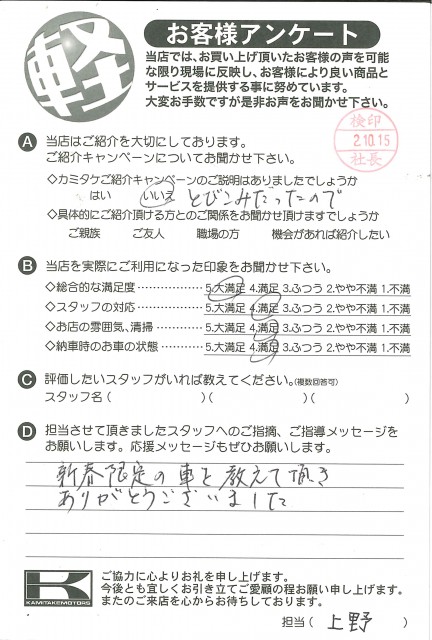 軽
お客様アンケート
当店では、お買い上げ頂いたお客様の声を可能
な限り現場に反映し、お客様により良い商品と
サービスを提供する事に努めています。
大変お手数ですが是非お声をお聞かせ下さい。
検印
2.10.15
社長
A 当店はご紹介を大切にしております。
ご紹介キャンペーンについてお聞かせ下さい。
◇カミタケご紹介キャンペーンのご説明はありましたでしょうか
はい いいえ とびこみだったので
◇具体的にご紹介頂ける方とのご関係をお聞かせ頂けますでしょうか
ご親族 ご友人 職場の方 機会があれば紹介したい
B 当店を実際にご利用になった印象をお聞かせ下さい。
◇総合的な満足度……………5.大満足 4.満足 3.ふつう 2.やや不満 1.不満
◇スタッフの対応……………5.大満足 4.満足 3.ふつう 2.やや不満 1.不満
◇お店の雰囲気、清掃………5.大満足 4.満足 3.ふつう 2.やや不満 1.不満
◇納車時のお車の状態………5.大満足 4.満足 3.ふつう 2.やや不満 1.不満
C 評価したいスタッフがいれば教えてください。(複数回答可)
スタッフ名( )( )( )
D 担当させて頂きましたスタッフへのご指摘、ご指導メッセージを
お願いします。応援メッセージもぜひお願いします。
新春限定の車を教えて頂き
ありがとうございました
K
KAMITAKEMOTORS
ご協力に心よりお礼を申し上げます。
今後とも宜しくお引き立てご愛顧の程お願い申し上げます。
またのご来店を心からお待ちしております。
担当( 上野 )